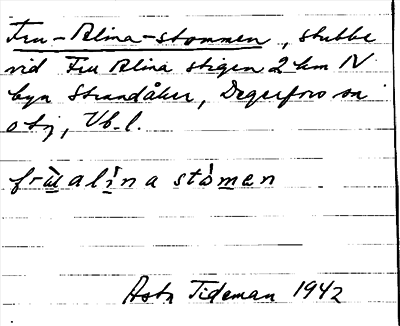 Fru-Alina-stommen, stubbe
vid Fru Alina stigen 2 km N
byn Strandåker, Degerfors sn
o tj, Vb. l.
frù alína stòmen
Asta Tideman 1942